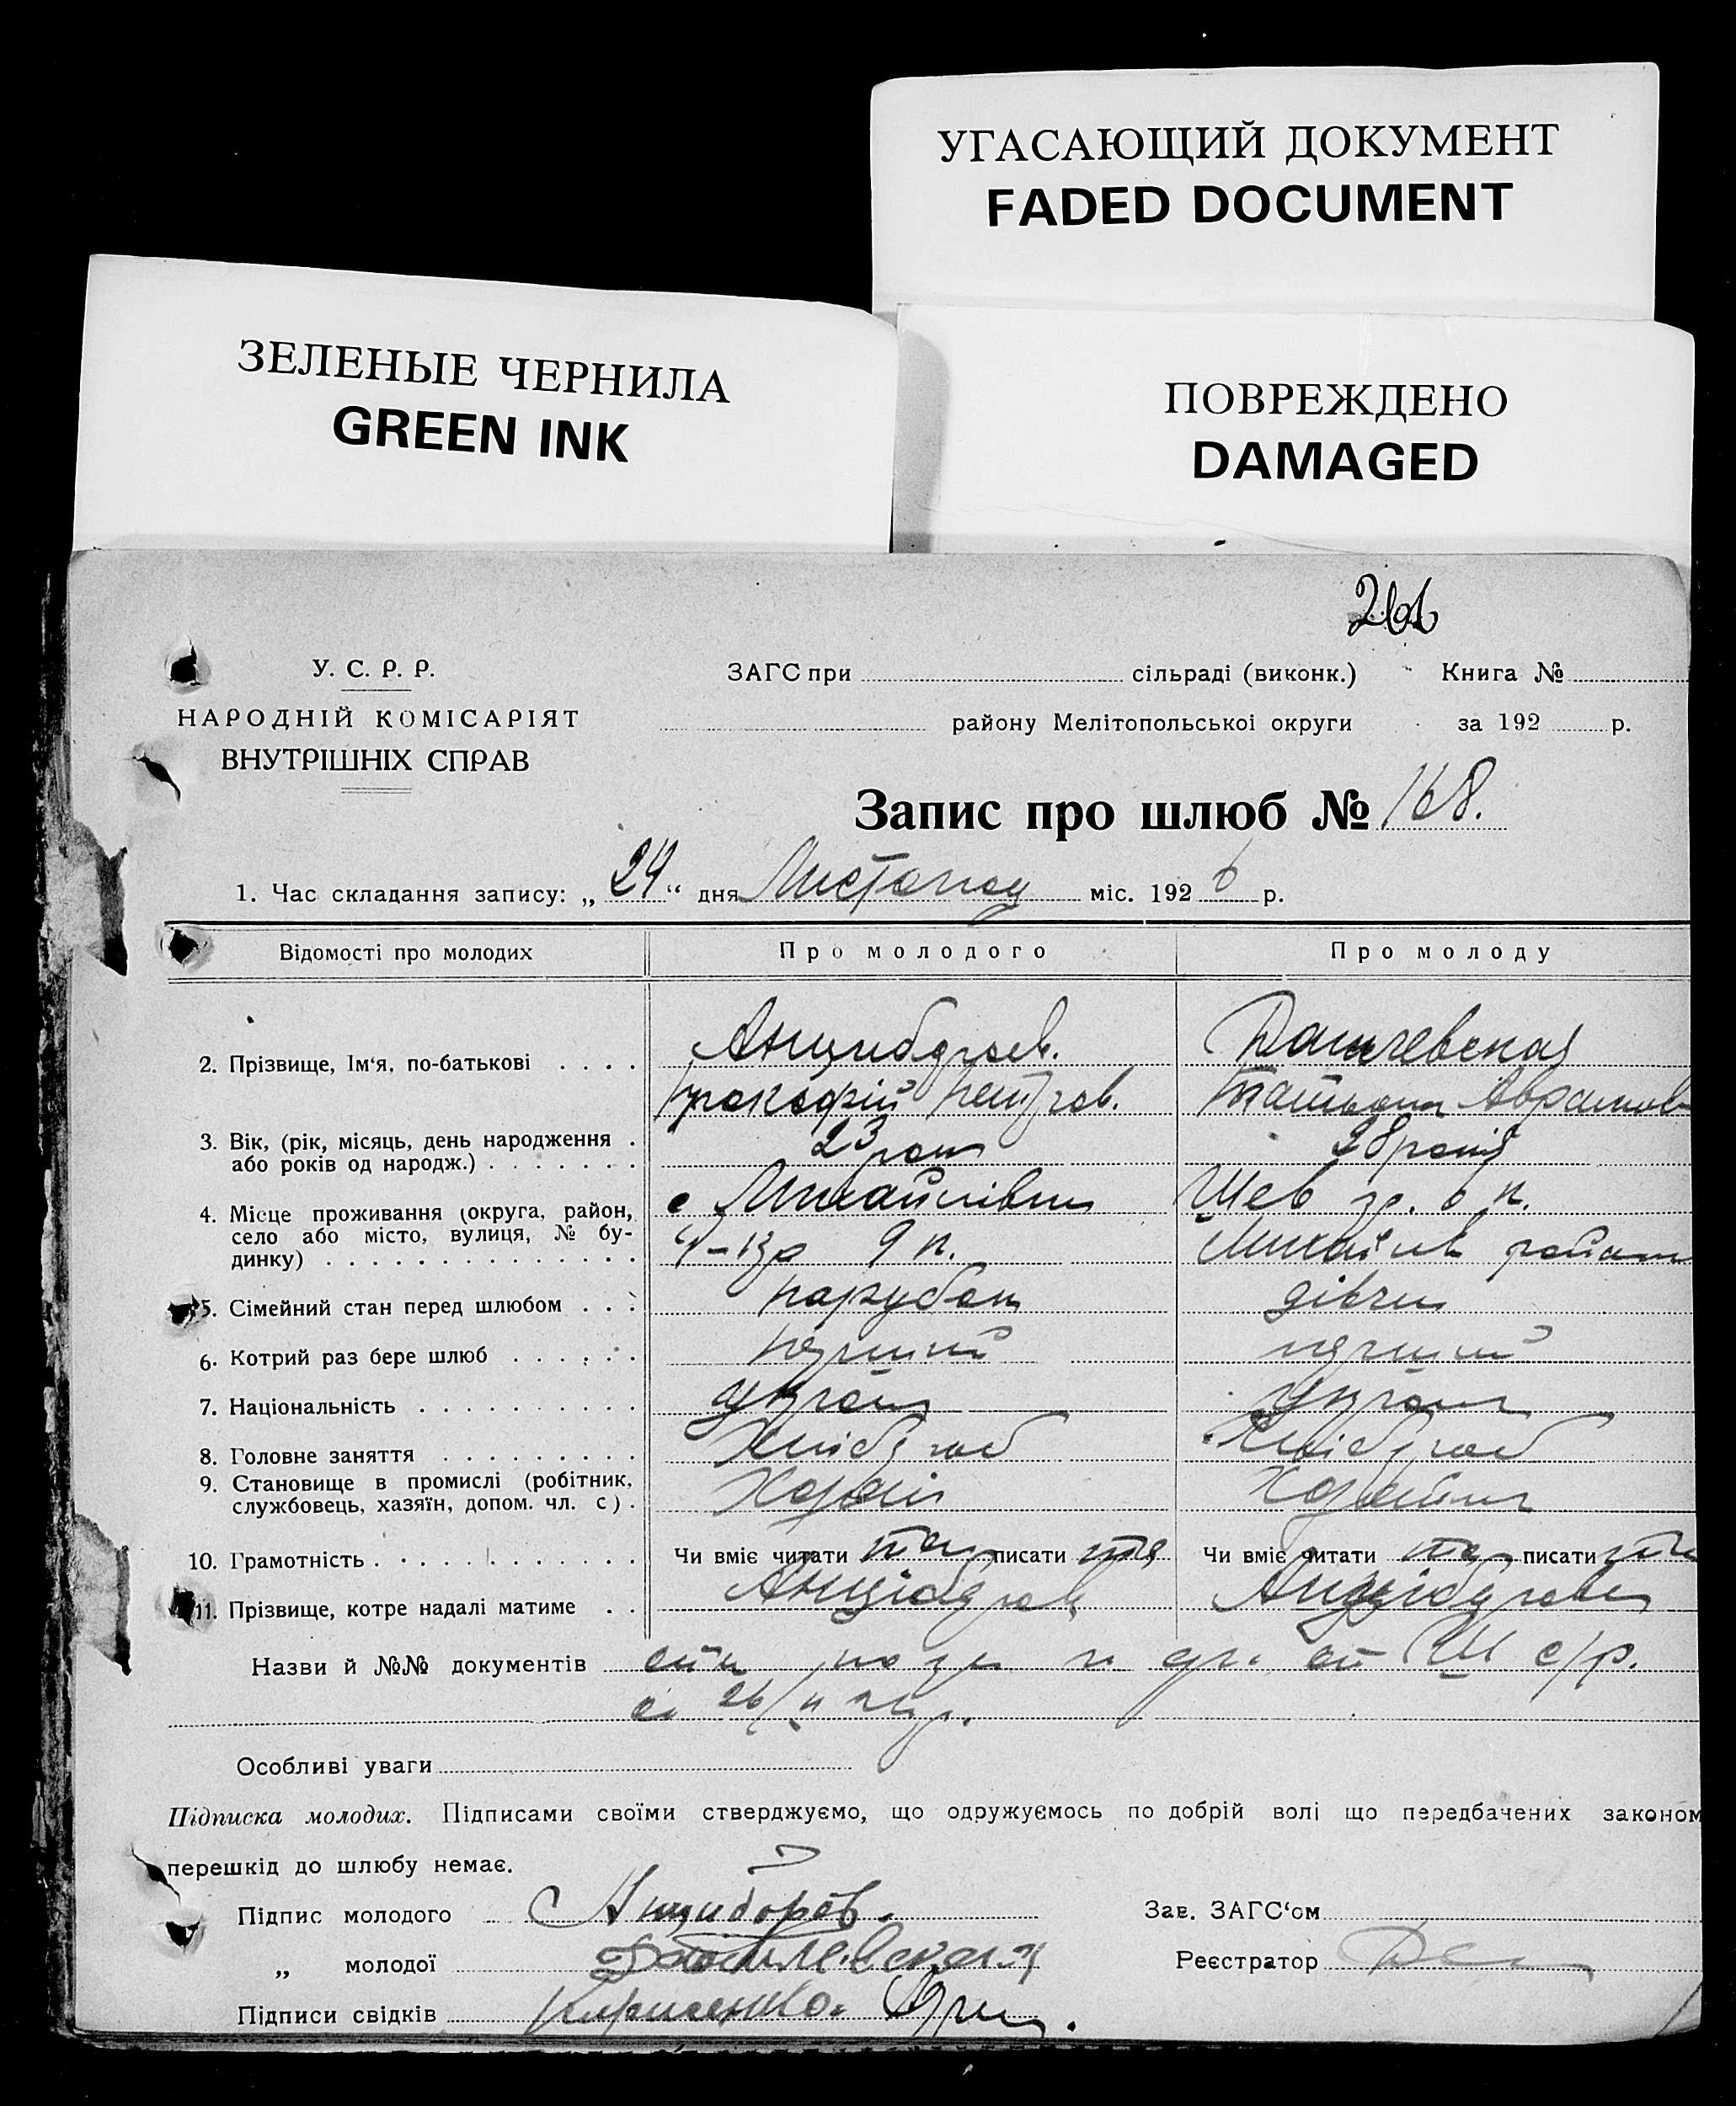 УГАСАЮЩИЙ ДОКУМЕНТ
FADED DOCUMENT
ЗЕЛЕНЫЕ ЧЕРНИЛА
GREEN INK
ПОВРЕЖДЕНО
DAMAGED
У. С. Р. Р.
НАРОДНІЙ КОМІСАРІЯТ
ВНУТРІШНІХ СПРАВ
ЗАГС при сільраді (виконк.) Книга №
району Мелітопольської округи за 192 р.
Запис про шлюб № 168.
1. Час складання запису: „24“ дня Листопад міс. 1926 р.
Відомості про молодих Про молодого Про молоду
2. Прізвище, Ім‘я, по-батькові Анциборов.
Прокофій Петров. Татьяна Аврамов
3. Вік, (рік, місяць, день народження 23 28 років
або років од народж.)
4. Місце проживання (округа, район, с Михайлівка Шев
село або місто, вулиця, № бу-
динку) 9 п. Михайлів району
5. Сімейний стан перед шлюбом парубок дівчина
6. Котрий раз бере шлюб перший перший
7. Національність україн україн
8. Головне заняття Хлібороб Хлібороб
9. Становище в промислі (робітник,
службовець, хазяїн, допом. чл. с). Хазяїн
10. Грамотність Чи вміє читати так писати так Чи вміє читати так писати так
11. Прізвище, котре надалі матиме Анціборов Анціборова
Назви й №№ документів с/р.
Особливі уваги
Підписка молодих. Підписами своїми стверджуємо, що одружуємось по добрій волі що передбачених законом
перешкід до шлюбу немає.
Підпис молодого Анциборов. Зав. ЗАГС‘ом
„ молодої Реєстратор
Підписи свідків Кириленко.